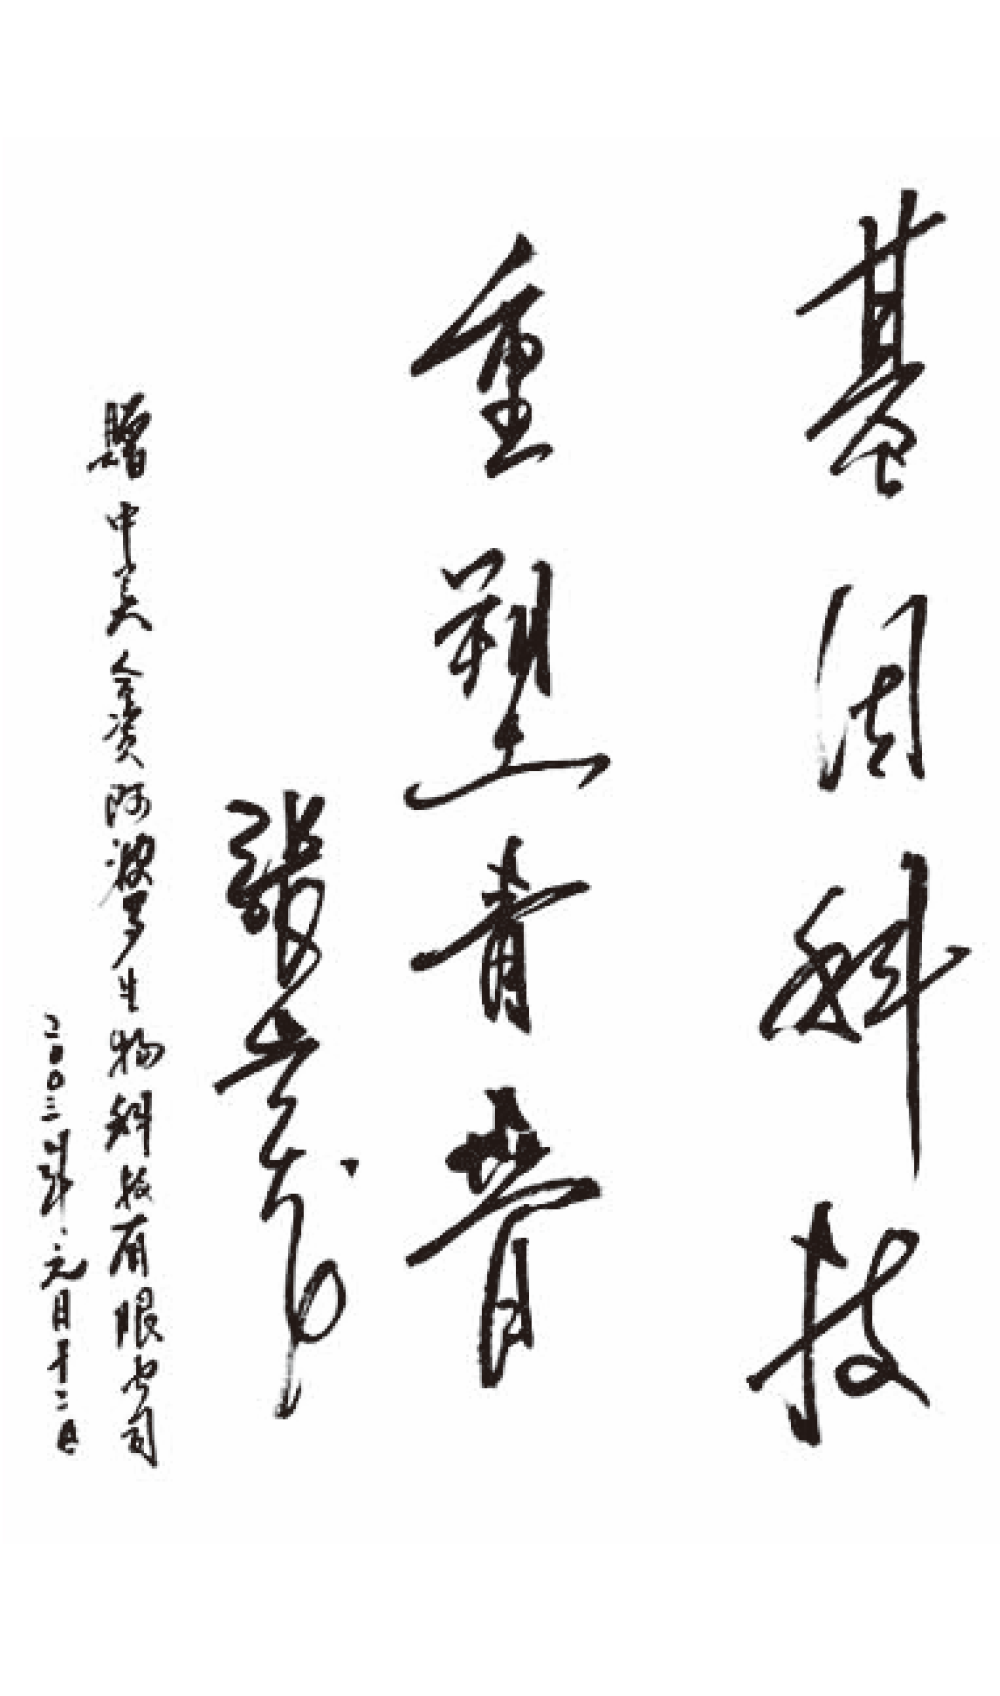 基因科技
重塑青春
張
贈中美合资阿波罗生物科技有限公司
二〇〇三年元月十二日